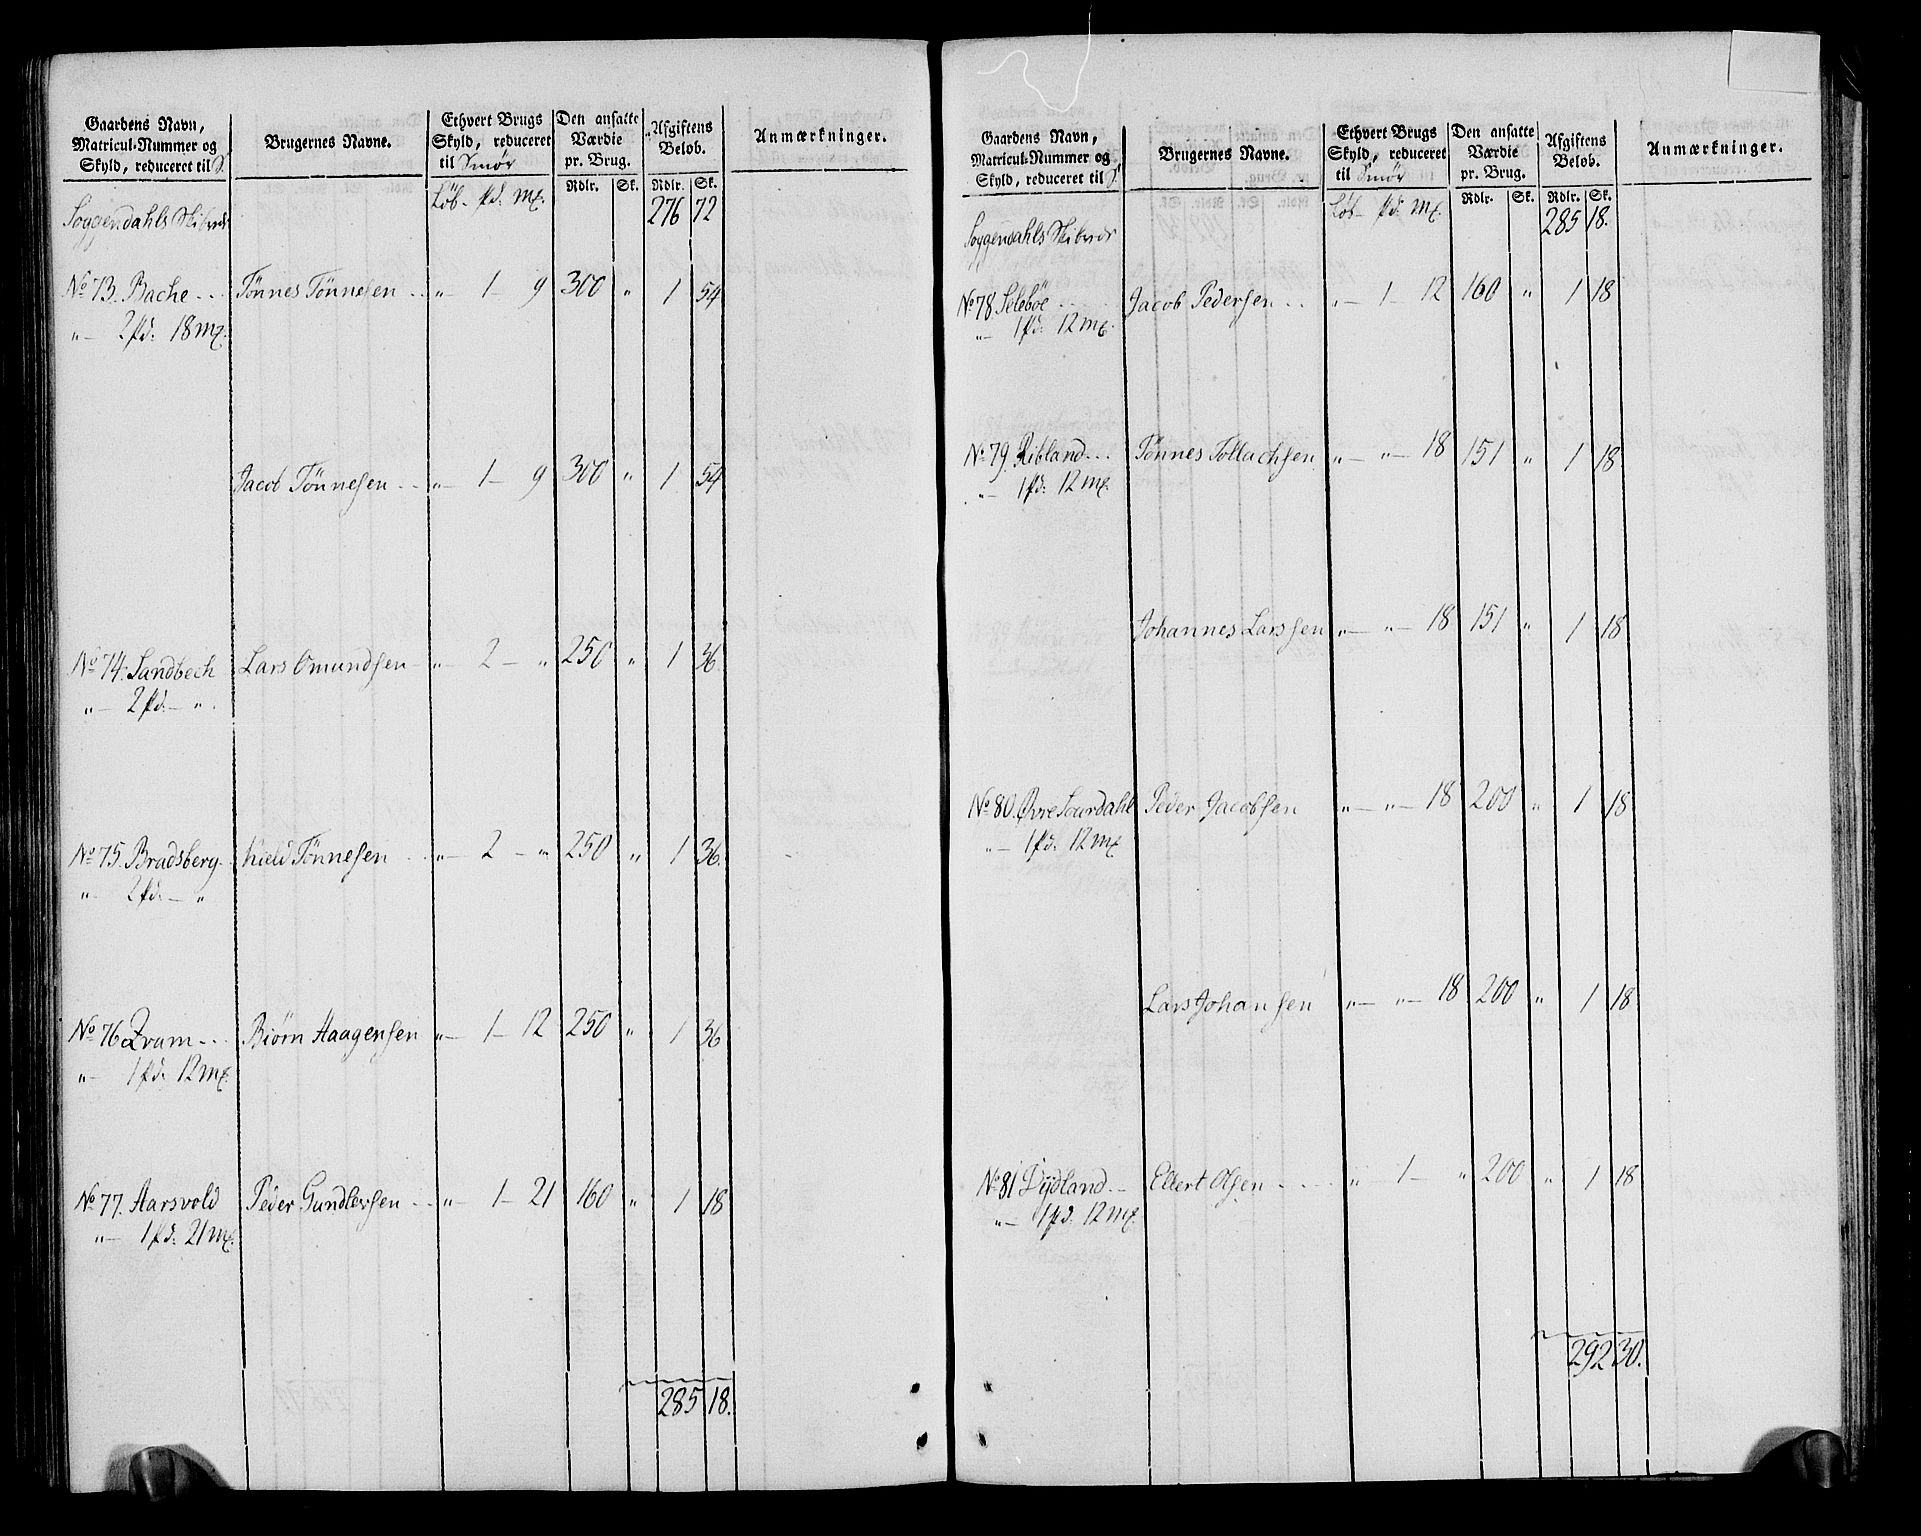 Gaardens Navn, Matricul-Nummer og Skyld, reduceret til S. | Brugernes Navne. | Ethvert Brugs Skyld, reduceret til Smør | Den ansatte Værdie pr. Brug. | Afgiftens Beløb. | Anmærkninger.
Rdlr. Sk. Rdlr. Sk.
Løb. pd. mk.
Soggendahls Skibrede 276 72
No 73. Bache Tønnes Tønnesen „ 1 9 300 „ 1 54
„ 2 pd: 18 mk.
Jacob Tønnesen „ 1 9 300 „ 1 54
No 74. Sandbech Lars Omundsen „ 2 „ 250 „ 1 36
„ 2 pd: „
No 75. Bradsberg Kield Tønnesen „ 2 „ 250 „ 1 36
„ 2 pd. „
No 76 Hvam Biørn Haagensen „ 1 12 250 „ 1 36
„ 1 pd: 12 mk.
No 77. Aarsvold Peder Gundlersen „ 1 21 160 „ 1 18
„ 1 pd: 21 mk.
285 18.
Gaardens Navn, Matricul-Nummer og Skyld, reduceret til S. | Brugernes Navne. | Ethvert Brugs Skyld, reduceret til Smør | Den ansatte Værdie pr. Brug. | Afgiftens Beløb. | Anmærkninger.
Rdlr. Sk. Rdlr. Sk.
Løb. pd. mk.
Soggendahls Skibrede 285 18.
No 78. Selebøe Jacob Pedersen „ 1 12 160 „ 1 18
„ 1 pd: 12 mk.
No 79. Ribland Tønnes Tollachsen „ „ 18 151 „ 1 18
„ 1 pd: 12 mk.
Johannes Larssen „ „ 18 151 „ 1 18
No 80. Øvre Sourdahl Peder Jacobsen „ „ 18 200 „ 1 18
„ 1 pd: 12 mk
Lars Johansen „ „ 18 200 „ 1 18
No 81 Dydland Ellert Olsen „ 1 „ 200 „ 1 18
„ 1 pd. 12 mk.
292 30.